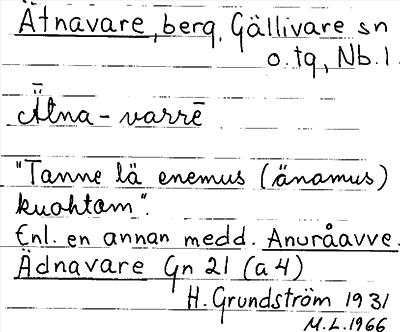 Ätnavare, berg, Gällivare sn
o. tg, Nb. l.
Ǟtna-varrē
"Tanne lä enemus (änamus)
kuohtam".
Enl. en annan medd. Anuråavve.
Ädnavare Gn 21 (a4)
H. Grundström 1931
M.L. 1966